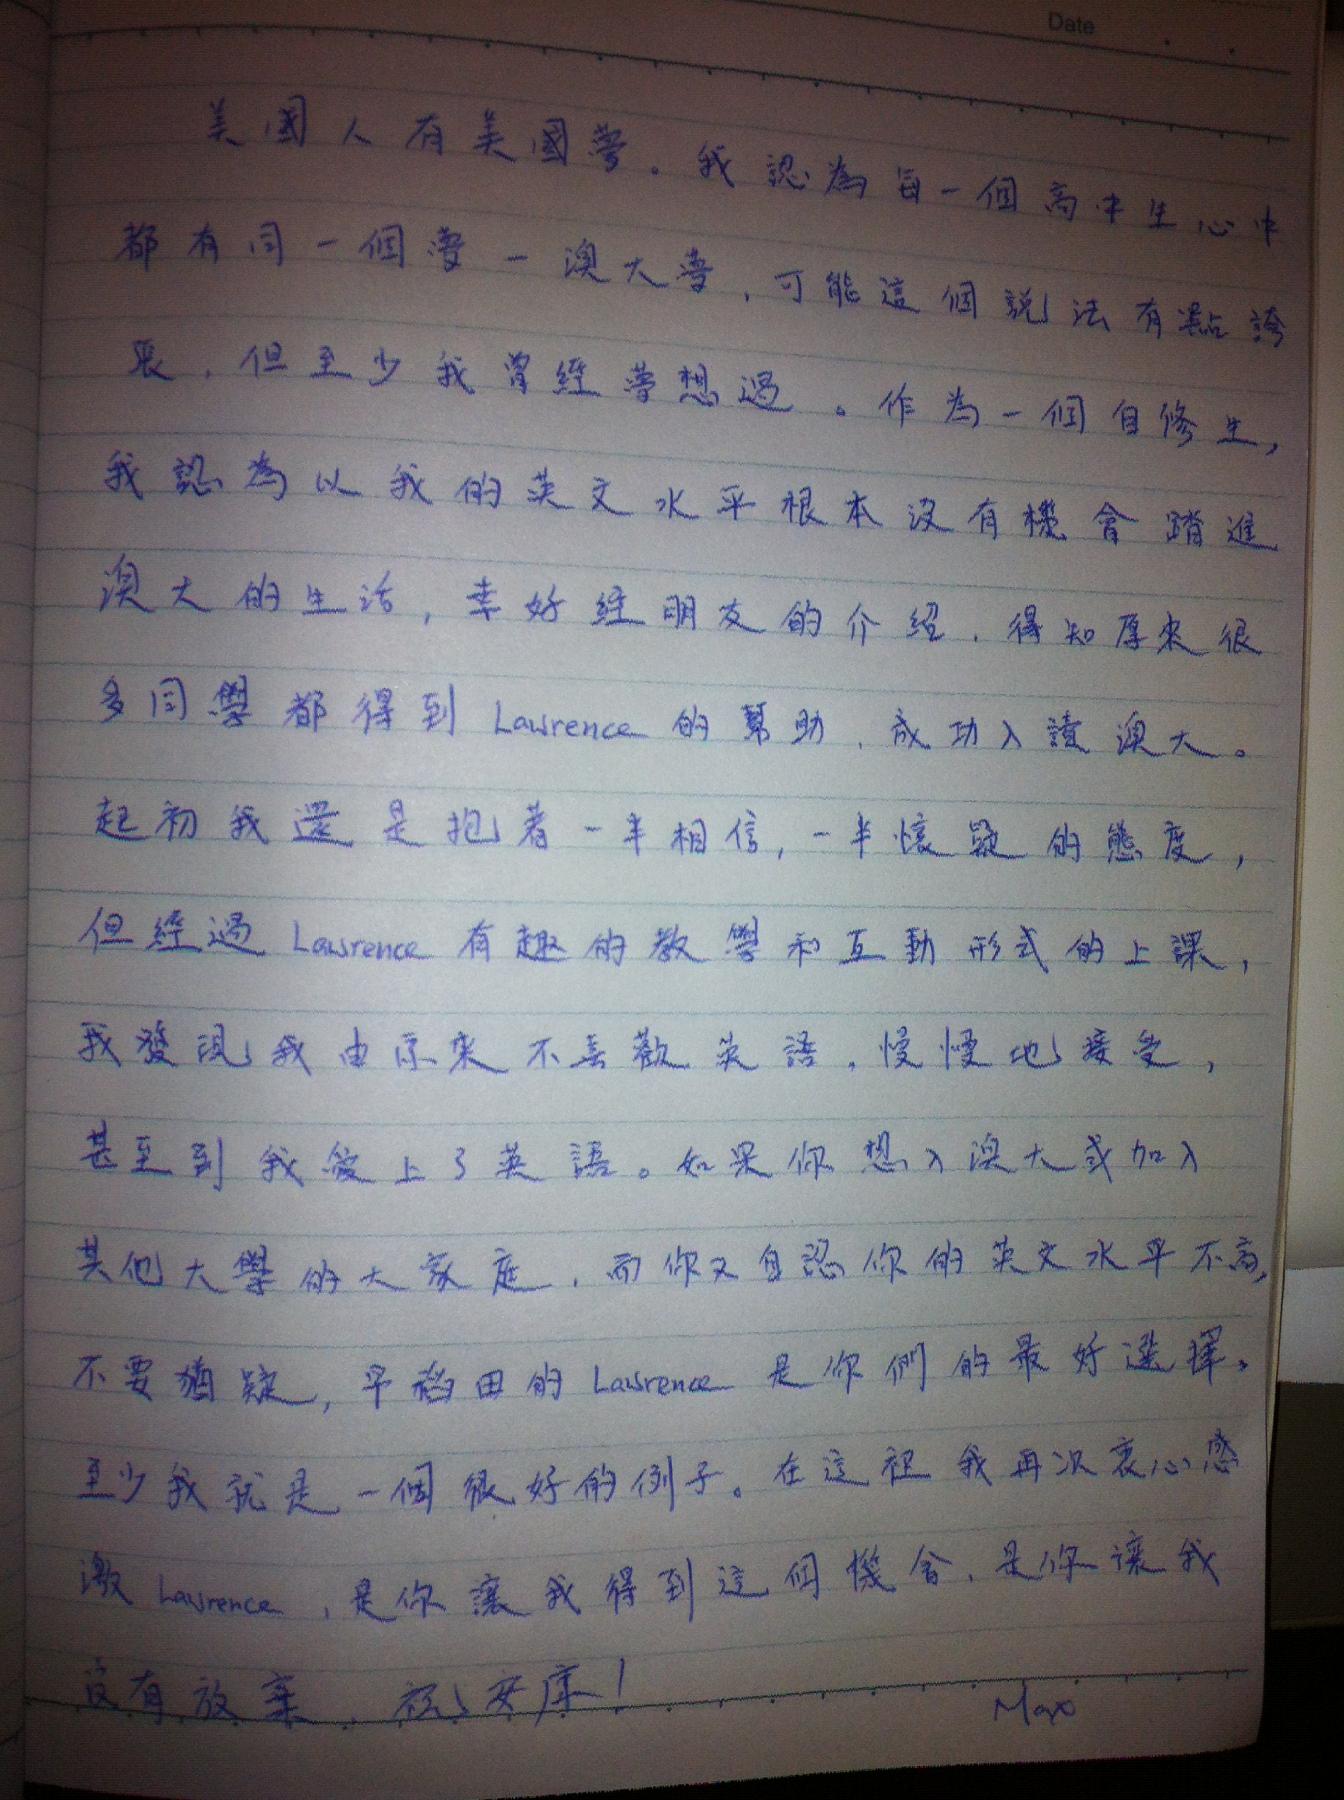 Date
美國人有美國夢。我認為每一個高中生心中
都有同一個夢－澳大夢，可能這個說法有點誇
張，但至少我曾經夢想過。作為一個自修生，
我認為以我的英文水平根本沒有機會踏進
澳大的生活，幸好經朋友的介紹，得知原來很
多同學都得到 Lawrence 的幫助，成功入讀澳大。
起初我還是抱著一半相信，一半懷疑的態度，
但經過 Lawrence 有趣的教學和互動形式的上課，
我發現我由原來不喜歡英語，慢慢地接受，
甚至到我愛上了英語。如果你想入澳大或加入
其他大學的大家庭，而你又自認你的英文水平不高，
不要猶疑，平稻田的 Lawrence 是你們的最好選擇。
至少我就是一個很好的例子。在這裡我再次衷心感
激 Lawrence，是你讓我得到這個機會，是你讓我
沒有放棄，祝安康！
Max